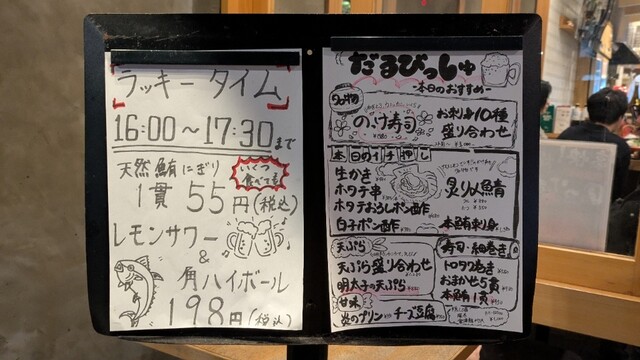 ラッキータイム
16:00～17:30まで
天然鮪にぎり
いくつ
食べても
1貫 55円(税込)
レモンサワー
&
角ハイボール
198円(税込)
だるびっしゅ
-本日のおすすめ-
名物
のっけ寿司
お刺身10種
盛り合わせ
本日のイチ押し
生かき
ホタテ串
ホタテおろしポン酢
白子ポン酢
炙り〆鯖
本鮪刺身
天ぷら
天ぷら盛り合わせ
明太子の天ぷら
甘味
炎のプリン
チーズ豆腐
寿司・細巻き
トロタク巻き
おまかせ5貫
本鮪1貫